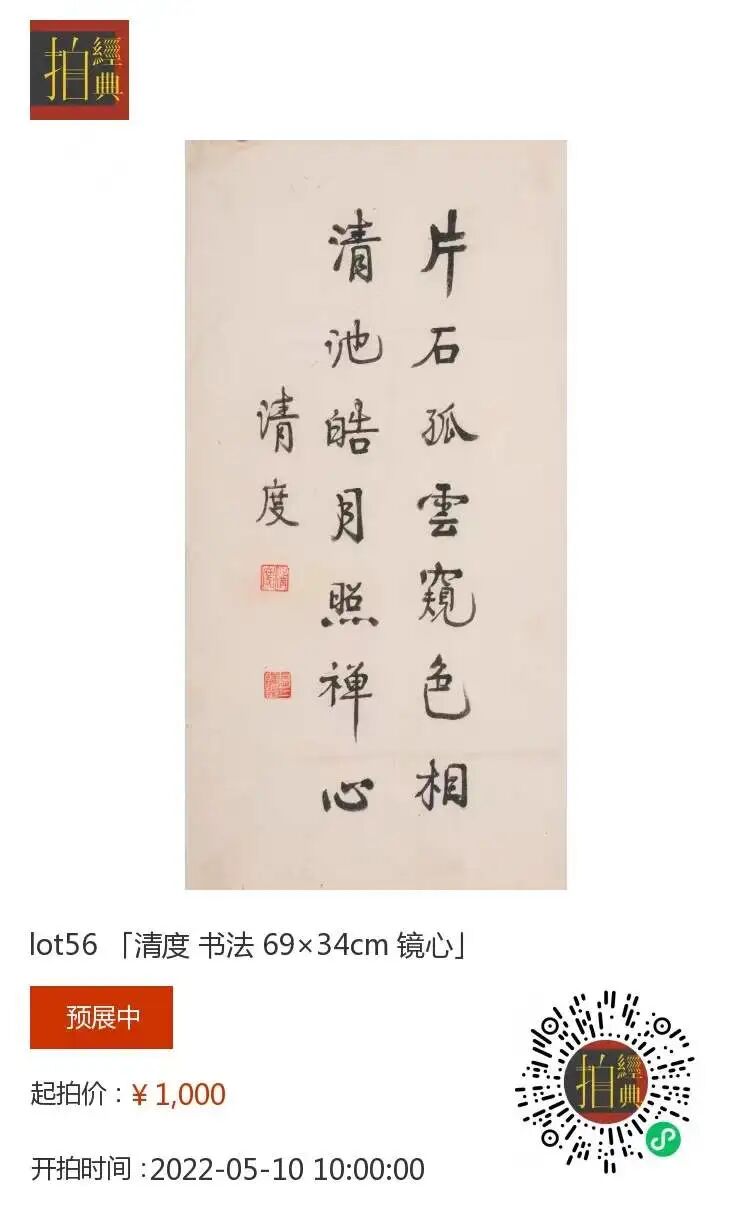 拍經典
片石孤雲窺色相
清池皓月照禅心
清度
lot56 「清度 书法 69×34cm 镜心」
预展中
起拍价：¥ 1,000
拍經典
开拍时间 :2022-05-10 10:00:00